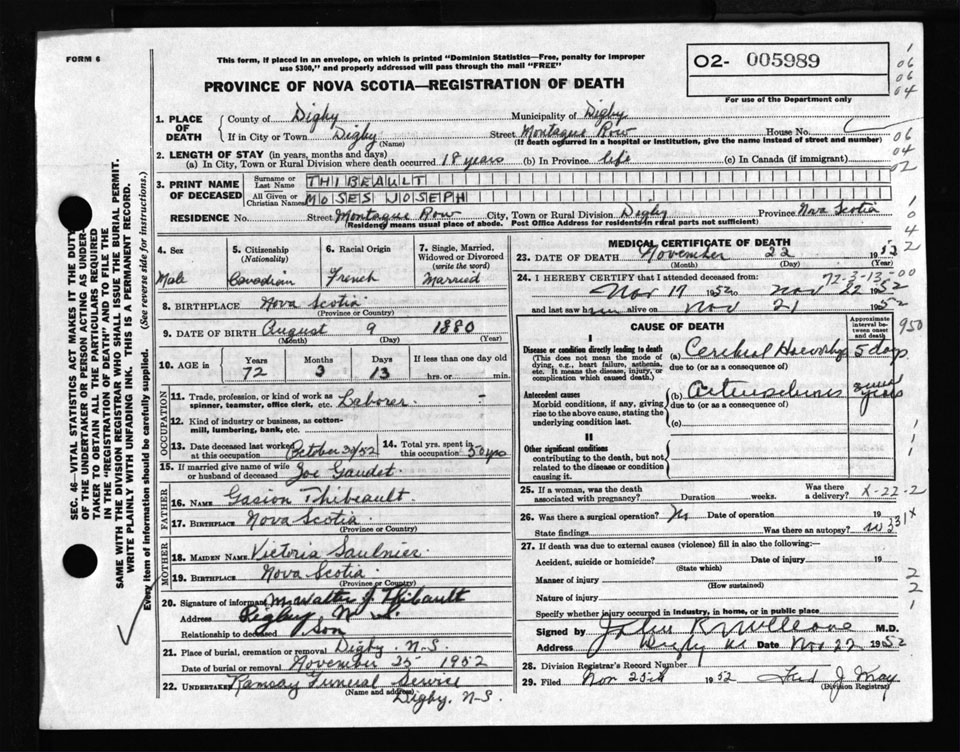 FORM 6
This form, if placed in an envelope, on which is printed "Dominion Statistics—Free, penalty for improper
use $300," and properly addressed will pass through the mail "FREE"
O2- 005989
PROVINCE OF NOVA SCOTIA—REGISTRATION OF DEATH
For use of the Department only
1. PLACE OF DEATH
County of Digby Municipality of Digby
If in City or Town Digby Street Montague Row House No.
(Name) (If death occurred in a hospital or institution, give the name instead of street and number)
2. LENGTH OF STAY (in years, months and days)
(a) In City, Town or Rural Division where death occurred 18 years (b) In Province life (c) In Canada (if immigrant)
3. PRINT NAME OF DECEASED
Surname or Last Name THIBEAULT
All Given or Christian Names MOSES JOSEPH
RESIDENCE No. Street Montague Row City, Town or Rural Division Digby Province Nova Scotia
(Residency means usual place of abode. Post Office Address for residents in rural parts not sufficient)
4. Sex Male
5. Citizenship (Nationality) Canadian
6. Racial Origin French
7. Single, Married, Widowed or Divorced (write the word) Married
8. BIRTHPLACE Nova Scotia
(Province or Country)
9. DATE OF BIRTH August 9 1880
(Month) (Day) (Year)
10. AGE in Years 72 Months 3 Days 13 If less than one day old hrs. or min.
OCCUPATION
11. Trade, profession, or kind of work as spinner, teamster, office clerk, etc. Laborer
12. Kind of industry or business, as cotton-mill, lumbering, bank, etc. -
13. Date deceased last worked at this occupation October 30/52
14. Total yrs. spent in this occupation 50 yrs
15. If married give name of wife or husband of deceased Zoe Gaudet
FATHER
16. NAME Gasion Thibeault
17. BIRTHPLACE Nova Scotia
(Province or Country)
MOTHER
18. MAIDEN NAME Victoria Saulnier
19. BIRTHPLACE Nova Scotia
(Province or Country)
20. Signature of informant Walter J Thibault
Address Digby N S.
Relationship to deceased Son
21. Place of burial, cremation or removal Digby. N-S.
Date of burial or removal November 25 1952
22. UNDERTAKER Ramsay Funeral Service
(Name and address)
Digby, N-S.
MEDICAL CERTIFICATE OF DEATH
23. DATE OF DEATH November 22 1952
(Month) (Day) (Year)
72-3-13-00
24. I HEREBY CERTIFY that I attended deceased from:
Nov 17 1952 to Nov 22 1952
and last saw him alive on Nov 21 1952
950
CAUSE OF DEATH
Approximate interval between onset and death
I
Disease or condition directly leading to death
(This does not mean the mode of dying, e.g., heart failure, asthenia, etc. It means the disease, injury, or complication which caused death.)
(a) Cerebral 5 days
due to (or as a consequence of)
Antecedent causes
Morbid conditions, if any, giving rise to the above cause, stating the underlying condition last.
(b) years
due to (or as a consequence of)
(c)
II
Other significant conditions
contributing to the death, but not related to the disease or condition causing it.
25. If a woman, was the death associated with pregnancy? Duration weeks. Was there a delivery?
X-22-2
26. Was there a surgical operation? No Date of operation 19
State findings Was there an autopsy?
331X
27. If death was due to external causes (violence) fill in also the following:—
Accident, suicide or homicide? Date of injury 19
(State which)
Manner of injury
(How sustained)
Nature of injury
Specify whether injury occurred in industry, in home, or in public place
Signed by M.D.
Address Digby Date Nov 22 1952
28. Division Registrar's Record Number
29. Filed Nov 25th 1952 Fred J May
(Division Registrar)
SEC. 46—VITAL STATISTICS ACT MAKES IT THE DUTY
OF THE UNDERTAKER OR PERSON ACTING AS UNDER-
TAKER TO OBTAIN ALL THE PARTICULARS REQUIRED
IN THE "REGISTRATION OF DEATH" AND TO FILE THE
SAME WITH THE DIVISION REGISTRAR WHO SHALL ISSUE THE BURIAL PERMIT.
WRITE PLAINLY WITH UNFADING INK. THIS IS A PERMANENT RECORD.
Every item of information should be carefully supplied. (See reverse side for instructions.)